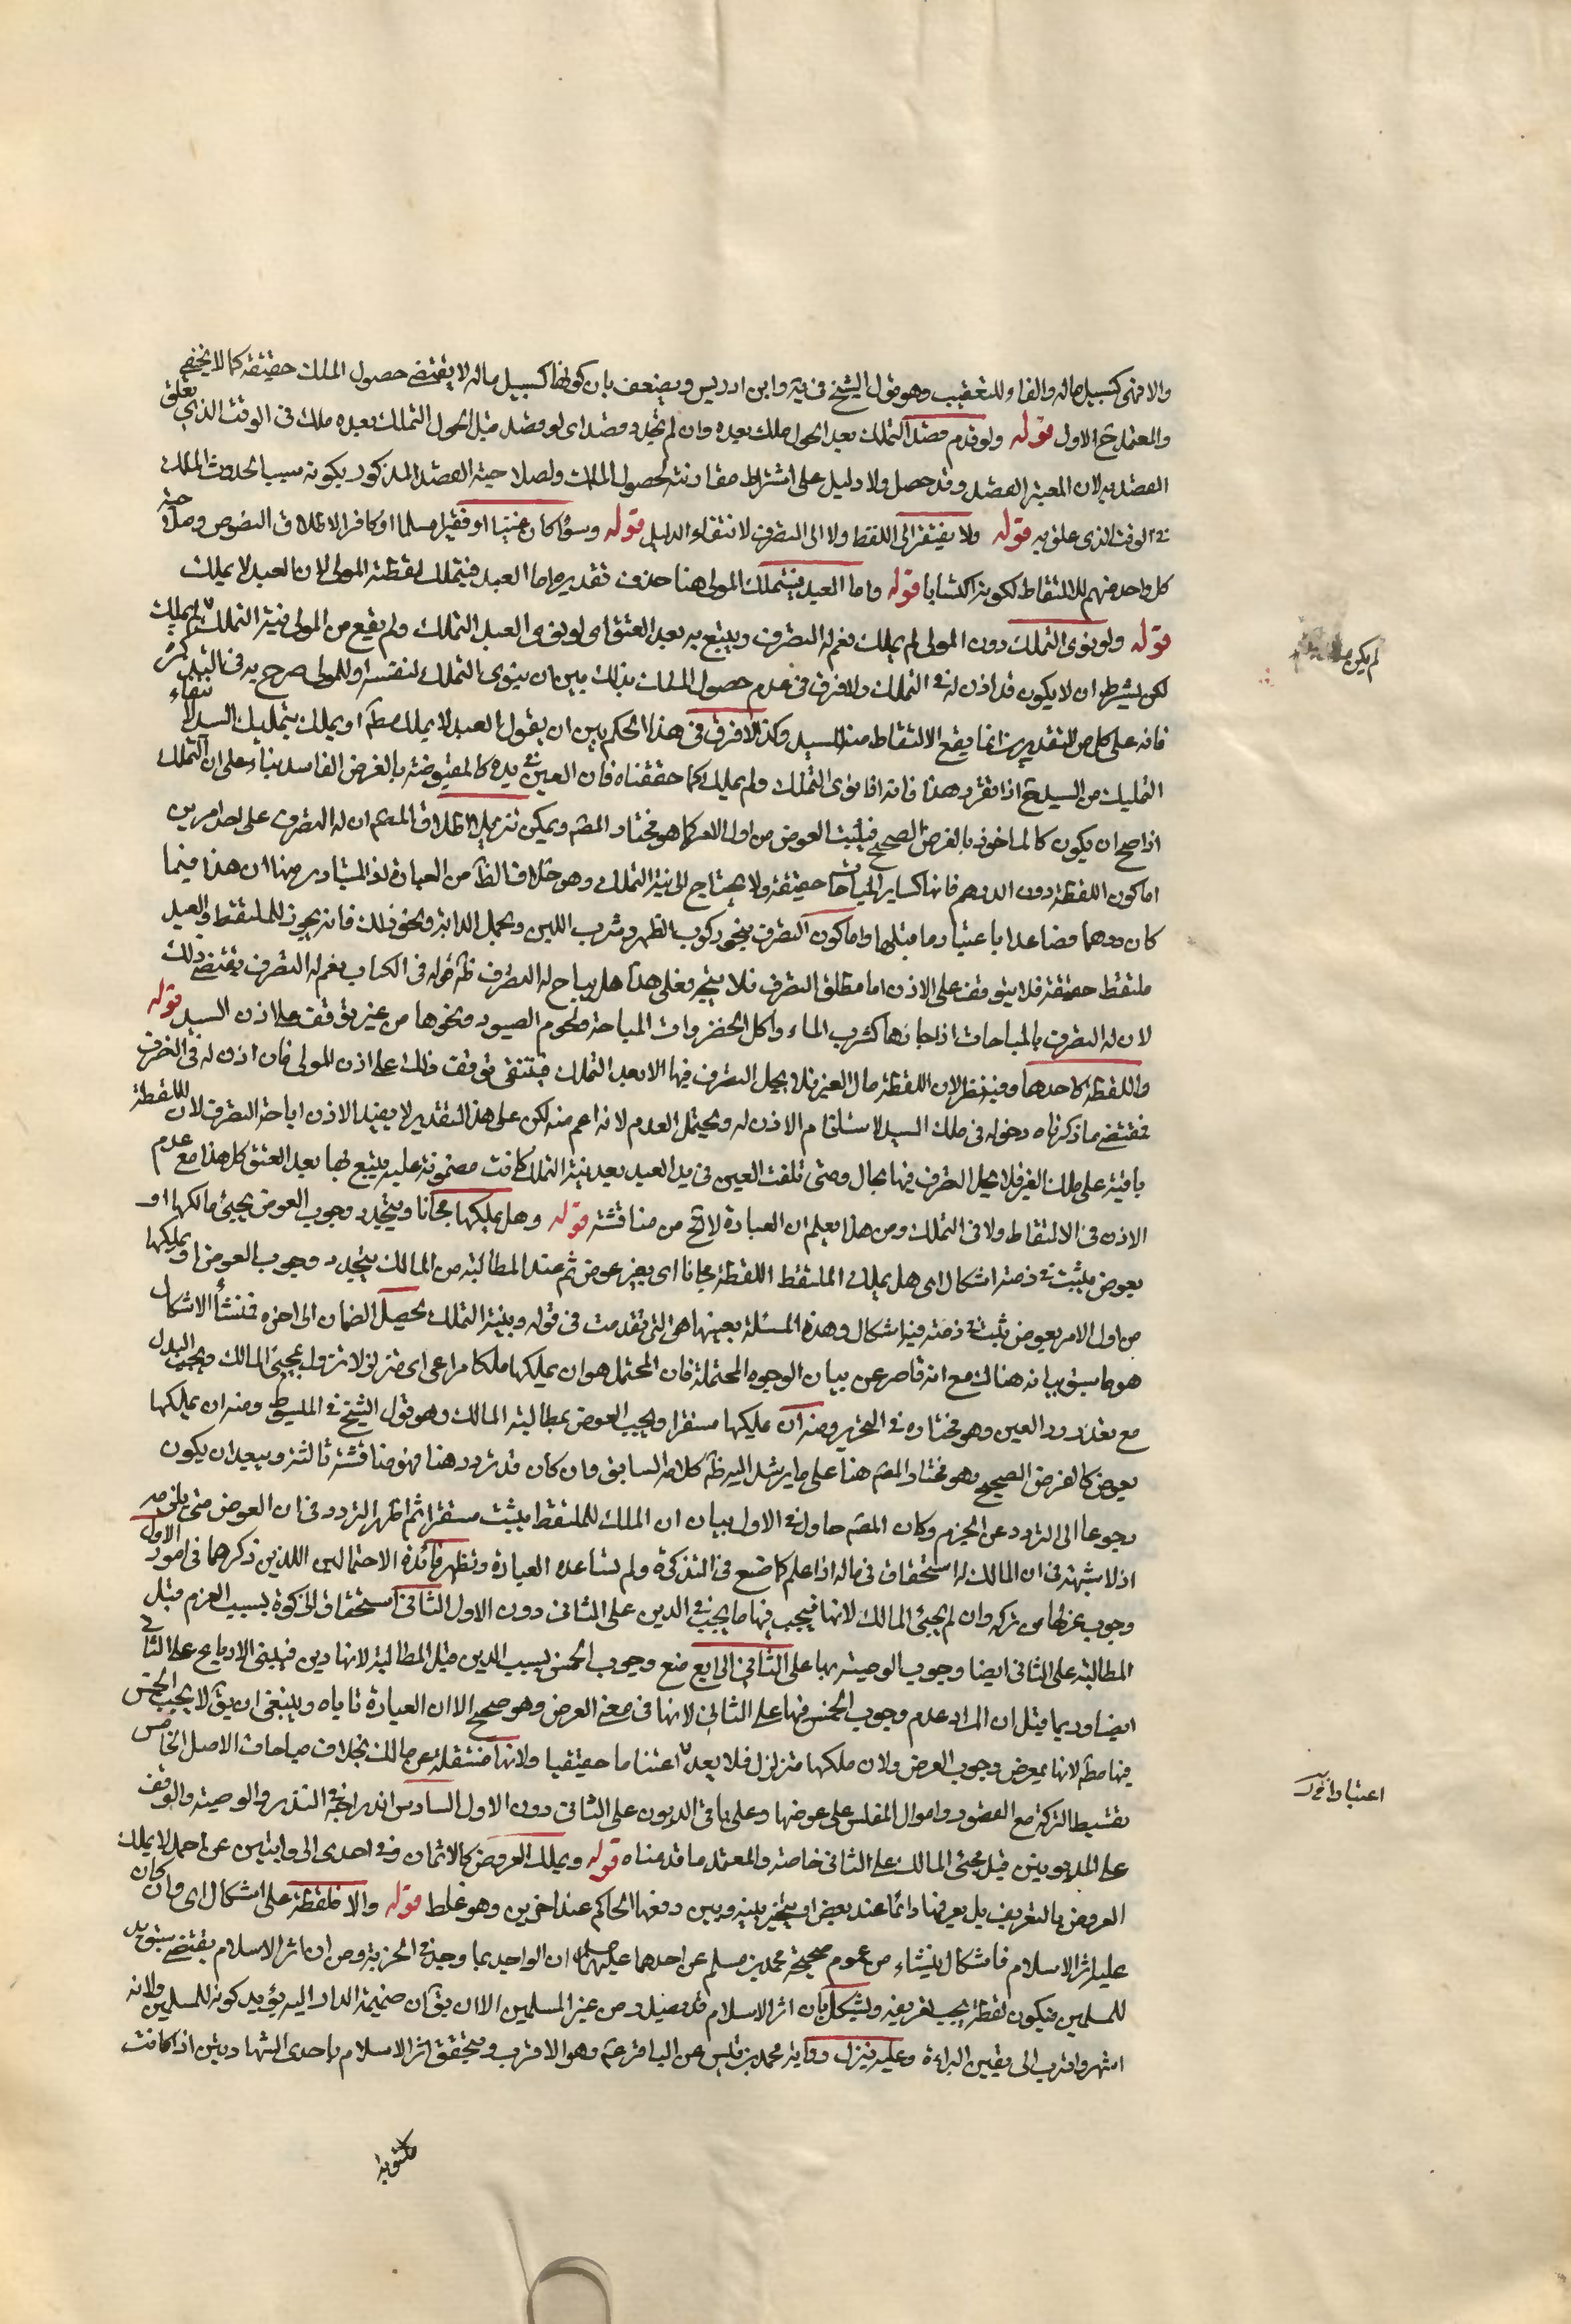 والا فهى كسبيل ماله والفاء للتعقيب وهو قول الشيخ فى ية وابن ادريس ويضعف بان كونها كسبيل ماله لا يقتضى حصول الملك حقيقة كما لا يخفى
والمعتمد ح الاول قوله ولو قدم قصد التملك بعد الحول ملك بعده وان لم يجدد قصدا اى لو قصد قبل الحول التملك بعده ملك فى الوقت الذى تعلق
القصد به لان المعتبر القصد وقد حصل ولا دليل على اشتراط مقارنته لحصول الملك ولصلاحية القصد المذكور بكونه سببا لحدوث الملك
فى الوقت الذى علق به قوله ولا يفتقر الى اللفظ ولا الى التصرف لانتفاء الدليل قوله وسواء كان غنيا او فقيرا مسلما او كافرا لاطلاق النصوص وصلاحية
كل واحد منهم للالتقاط لكونه اكتسابا قوله واما العبد فيتملك المولى هنا حذف تقديره واما العبد فيتملك لقطته المولى لان العبد لا يملك
قوله ولو نوى التملك دون المولى لم يملك نعم له التصرف ويتبع به بعد العتق اى لو نوى العبد التملك ولم يقع من المولى نية التملك لم يملك
لكن يشترط ان لا يكون قد اذن له فى التملك ولا فرق فى عدم حصول الملك بذلك بين ان ينوى التملك لنفسه او للمولى صرح به فى التذكرة
فانه على كل من التقديرين انما يقع الالتقاط من السيد وكذا لا فرق فى هذا الحكم بين ان يقول العبد لا يملك مطلقا او يملك بتمليك السيد لانتفاء
التمليك من السيد ح اذا تقرر هذا فانه اذا نوى التملك ولم يملك كما حققناه فان العين فى يده كالمقبوضة بالقرض الفاسد بناء على ان التملك
اذا صح ان يكون كالماخوذ بالقرض الصحيح فيثبت العوض من اول الامر كما هو مختار المصنف ويمكن تنزيل اطلاق المصنف ان له التصرف على احد امرين
اما كون اللقطة دون الدرهم فانها كسائر المباحات حقيقة ولا يحتاج الى نية التملك وهو خلاف الظاهر من العبارة اذ المتبادر منها ان هذا فيما
كان درهما فصاعدا باعتبار ما قبلها واما كون التصرف بنحو ركوب الظهر وشرب اللبن وحمل الدابة ونحو ذلك فانه يجوز للملتقط والعبد
ملتقط حقيقة فلا يتوقف على الاذن اما مطلق التصرف فلا يتجه فعلى هذا هل يباح له التصرف ظاهر قوله فى الكتاب نعم له التصرف يقتضى ذلك
لان له التصرف بالمباحات اذا حازها كشرب الماء واكل الخضروات المباحة ولحوم الصيود ونحوها من غير توقف على اذن السيد قوله
واللقطة كاحدها وفيه نظر لان اللقطة مال الغير فلا يحل التصرف فيها الا بعد التملك فينتفى توقف ذلك على اذن المولى فان اذن له فى التصرف
فمقتضى ما ذكرناه دخوله فى ملك السيد لاستلزام الاذن له ويحتمل العدم لانه اعم منه لكن على هذا التقدير لا يفيد الاذن اباحة التصرف لان اللقطة
باقية على ملك الغير فلا يحل التصرف فيها بحال ومتى تلفت العين فى يد العبد بعد نية التملك كانت مضمونة عليه يتبع بها بعد العتق كل هذا مع عدم
الاذن فى الالتقاط ولا فى التملك ومن هذا يعلم ان العبارة لا تخ من مناقشة قوله وهل يملكها مجانا ويتجدد وجوب العوض بمجئ مالكها او
بعوض يثبت فى ذمته اشكال اى هل يملك الملتقط اللقطة مجانا اى بغير عوض ثم عند المطالبة من المالك يتجدد وجوب العوض او يملكها
من اول الامر بعوض يثبت فى ذمته فيه اشكال وهذه المسئلة بعينها هى التى تقدمت فى قوله وبنية التملك يحصل الضمان الى اخره فمنشأ الاشكال
هو ما سبق بيانه هناك مع انه قاصر عن بيان الوجوه المحتملة فان المحتمل هو ان يملكها ملكا مراعى اى متزلزلا تزول بمجئ المالك ويجب البدل
مع تعذر رد العين وهو مختاره فى التحرير ومنه ان يملكها مستقرا ويجب العوض بمطالبة المالك وهو قول الشيخ فى المبسوط ومنه ان يملكها
بعوض كالقرض الصحيح وهو مختار المصنف هنا على ما يرشد اليه ظاهر كلامه السابق وان كان قد تردد هنا فهو مناقشة ثالثة ويبعد ان يكون
رجوعا الى التردد عن الجزم وكان المصنف حاول فى الاول بيان ان الملك للملتقط يثبت مستقرا ثم اظهر التردد فى ان العوض متى يلزمه
اذ لا شبهة فى ان المالك له استحقاق فى ماله اذا علم كما صنع فى التذكرة ولم تساعده العبارة وتظهر فائدة الاحتمالين اللذين ذكرهما فى امور الاول
وجوب عزلها من تركه وان لم يجئ المالك لانها فيجب فيها ما يجب فى الدين على الثانى دون الاول الثانى استحقاق الزكوة بسبب الغرم قبل
المطالبة على الثانى ايضا وجوب الوصية بها على الثانى الرابع منع وجوب الخمس بسبب الدين قبل المطالبة لانها دين فيبنى الارباح على الثانى
ايضا وربما قيل ان المراد عدم وجوب الخمس فيها على الثانى لانها فى معنى القرض وهو صحيح الا ان العبارة تاباه وينبغى ان يق لا يجب الخمس
فيها مطلقا لانها بمعرض وجوب العرض ولان ملكها متزلزل فلا يعد اغتناما حقيقيا ولانها منتقلة عن مالك بخلاف مباحات الاصل الخامس
تقسيط التركة مع القصور واموال المفلس على عوضها وعلى باقى الديون على الثانى دون الاول السادس اندراجه فى النذر والوصية والوقف
على المديونين قبل مجئ المالك على الثانى خاصة والمعتمد ما قدمناه قوله ويملك العروض كالاثمان وفى احدى الروايتين عن احمد لا يملك
العروض بالتعريف بل يعرفها دائما عند بعض او يتخير بينه وبين دفعها الحاكم عند اخرين وهو غلط قوله والا فلقطة على اشكال اى وان كان
عليه اثر الاسلام فاشكال ينشاء من عموم صحيحة محمد بن مسلم عن احدهما عليهما السلام ان الواجد بما وجد فى الخربة ومن ان اثر الاسلام يقتضى سبق يد
للمسلمين فيكون لقطة يجب تعريفه ويشكل بان اثر الاسلام قد يصدر من غير المسلمين الا ان يق ان ضميمة الدار اليه يؤيد كونه للمسلمين ولانه
اشهر واقرب الى يقين البراءة وعليه ينزل رواية محمد بن قيس عن الباقر ع وهو الاقرب ويتحقق اثر الاسلام باحدى الشهادتين اذا كانت
مكتوبة
لم يكن